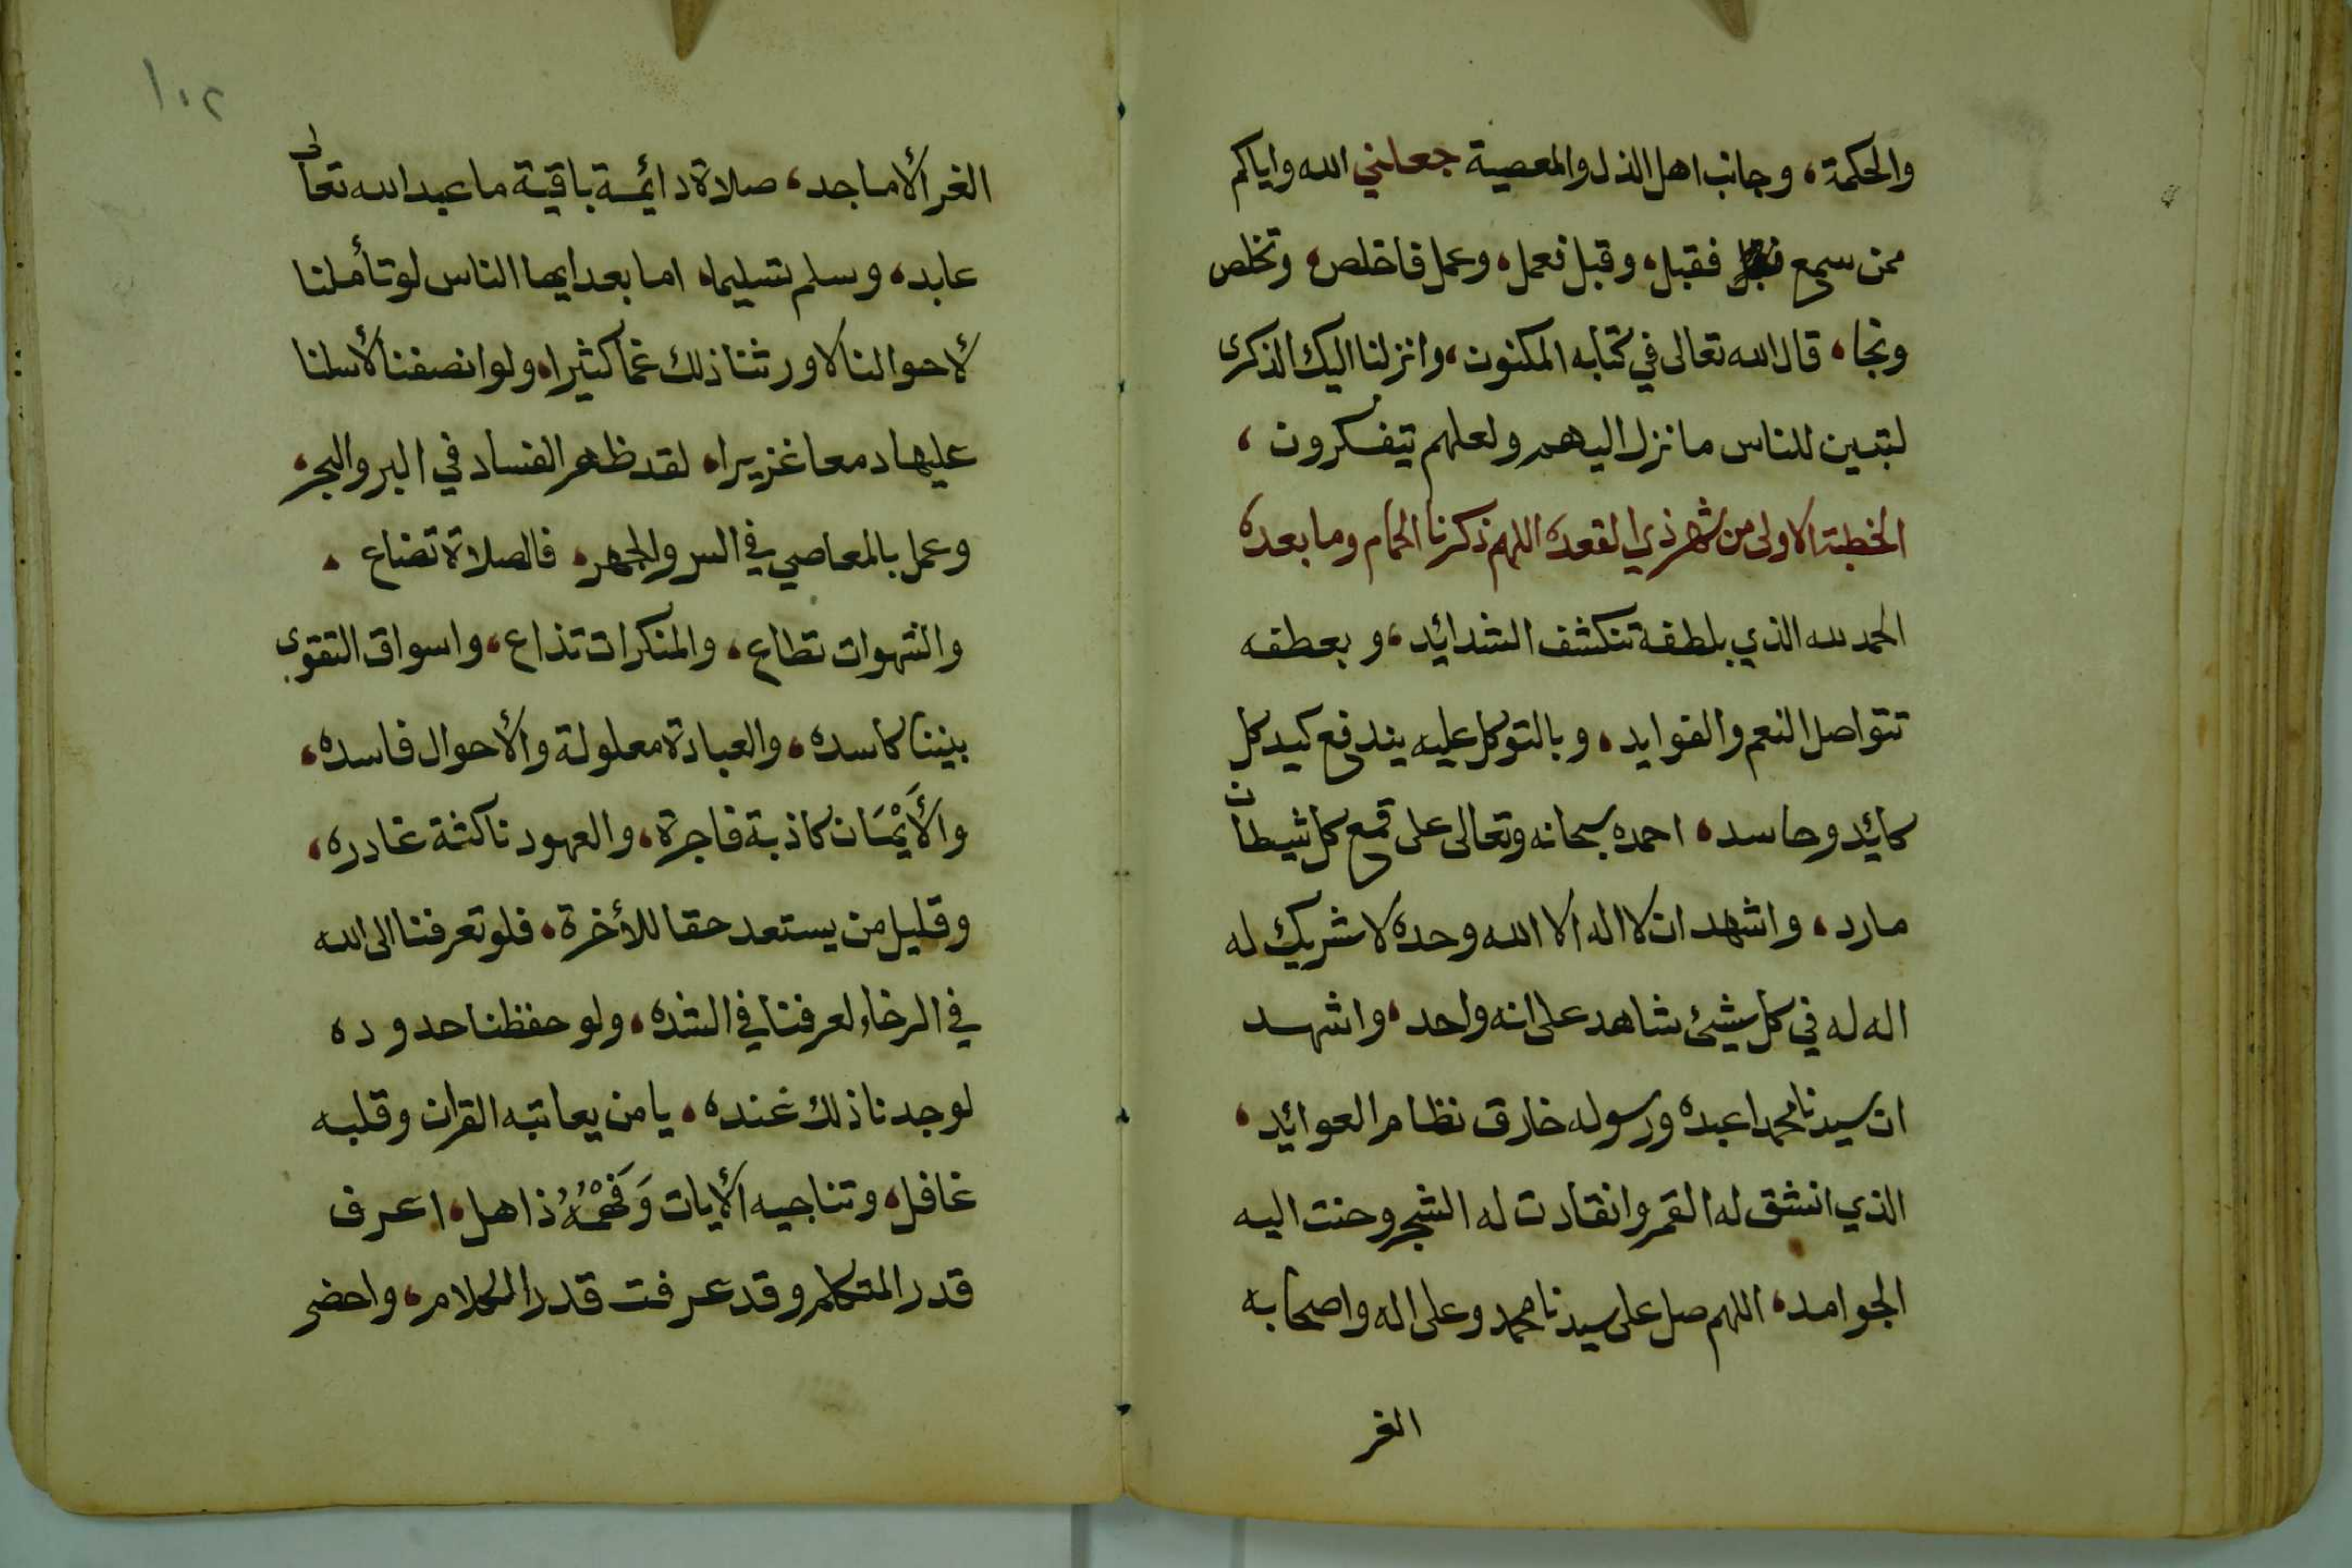 والحكمة، وجانب اهل الذل والمعصية جعلني الله واياكم
ممن سمع فقبل، وقبل فعمل، وعمل فاخلص، وتخلص
ونجا، قال الله تعالى في كتابه المكنون، وانزلنا اليك الذكرى
لتبين للناس ما نزل اليهم ولعلهم يتفكرون،
الخطبة الاولى من شهر ذي القعده اللهم ذكرنا الحمام وما بعده
الحمد لله الذي بلطفه تنكشف الشدائد، وبعطفه
تتواصل النعم والفوايد، وبالتوكل عليه يندفع كيد كل
كائد وحاسد، احمده سبحانه وتعالى على قمع كل شيطان
مارد، واشهد ان لا اله الا الله وحده لا شريك له
اله له في كل شيئ شاهد على انه واحد، واشهد
ان سيدنا محمدا عبده ورسوله خارق نظام العوائد،
الذي انشق له القمر وانقادت له الشجر وحنت اليه
الجوامد، اللهم صل على سيدنا محمد وعلى اله واصحابه
الغر
١٠٢
الغر الأماجد، صلاة دائمة باقية ما عبد الله تعالى
عابد، وسلم تسليما، اما بعد ايها الناس لو تأملنا
لأحوالنا لاورثنا ذلك غما كثيرا، ولو انصفنا لأسلنا
عليها دمعا غزيرا، لقد ظهر الفساد في البر والبحر،
وعمل بالمعاصي في السر والجهر، فالصلاة تضاع،
والشهوات تطاع، والمنكرات تذاع، واسواق التقوى
بيننا كاسده، والعبادة معلولة والأحوال فاسده،
والأَيْمَان كاذبة فاجرة، والعهود ناكثة غادره،
وقليل من يستعد حقا للأخرة، فلو تعرفنا الى الله
في الرخاء لعرفنا في الشده، ولو حفظنا حدوده
لوجدنا ذلك عنده، يا من يعاتبه القران وقلبه
غافل، وتناجيه الأيات وَفَهْمُهُ ذاهل، اعرف
قدر المتكلم وقد عرفت قدر الكلام، واحضر